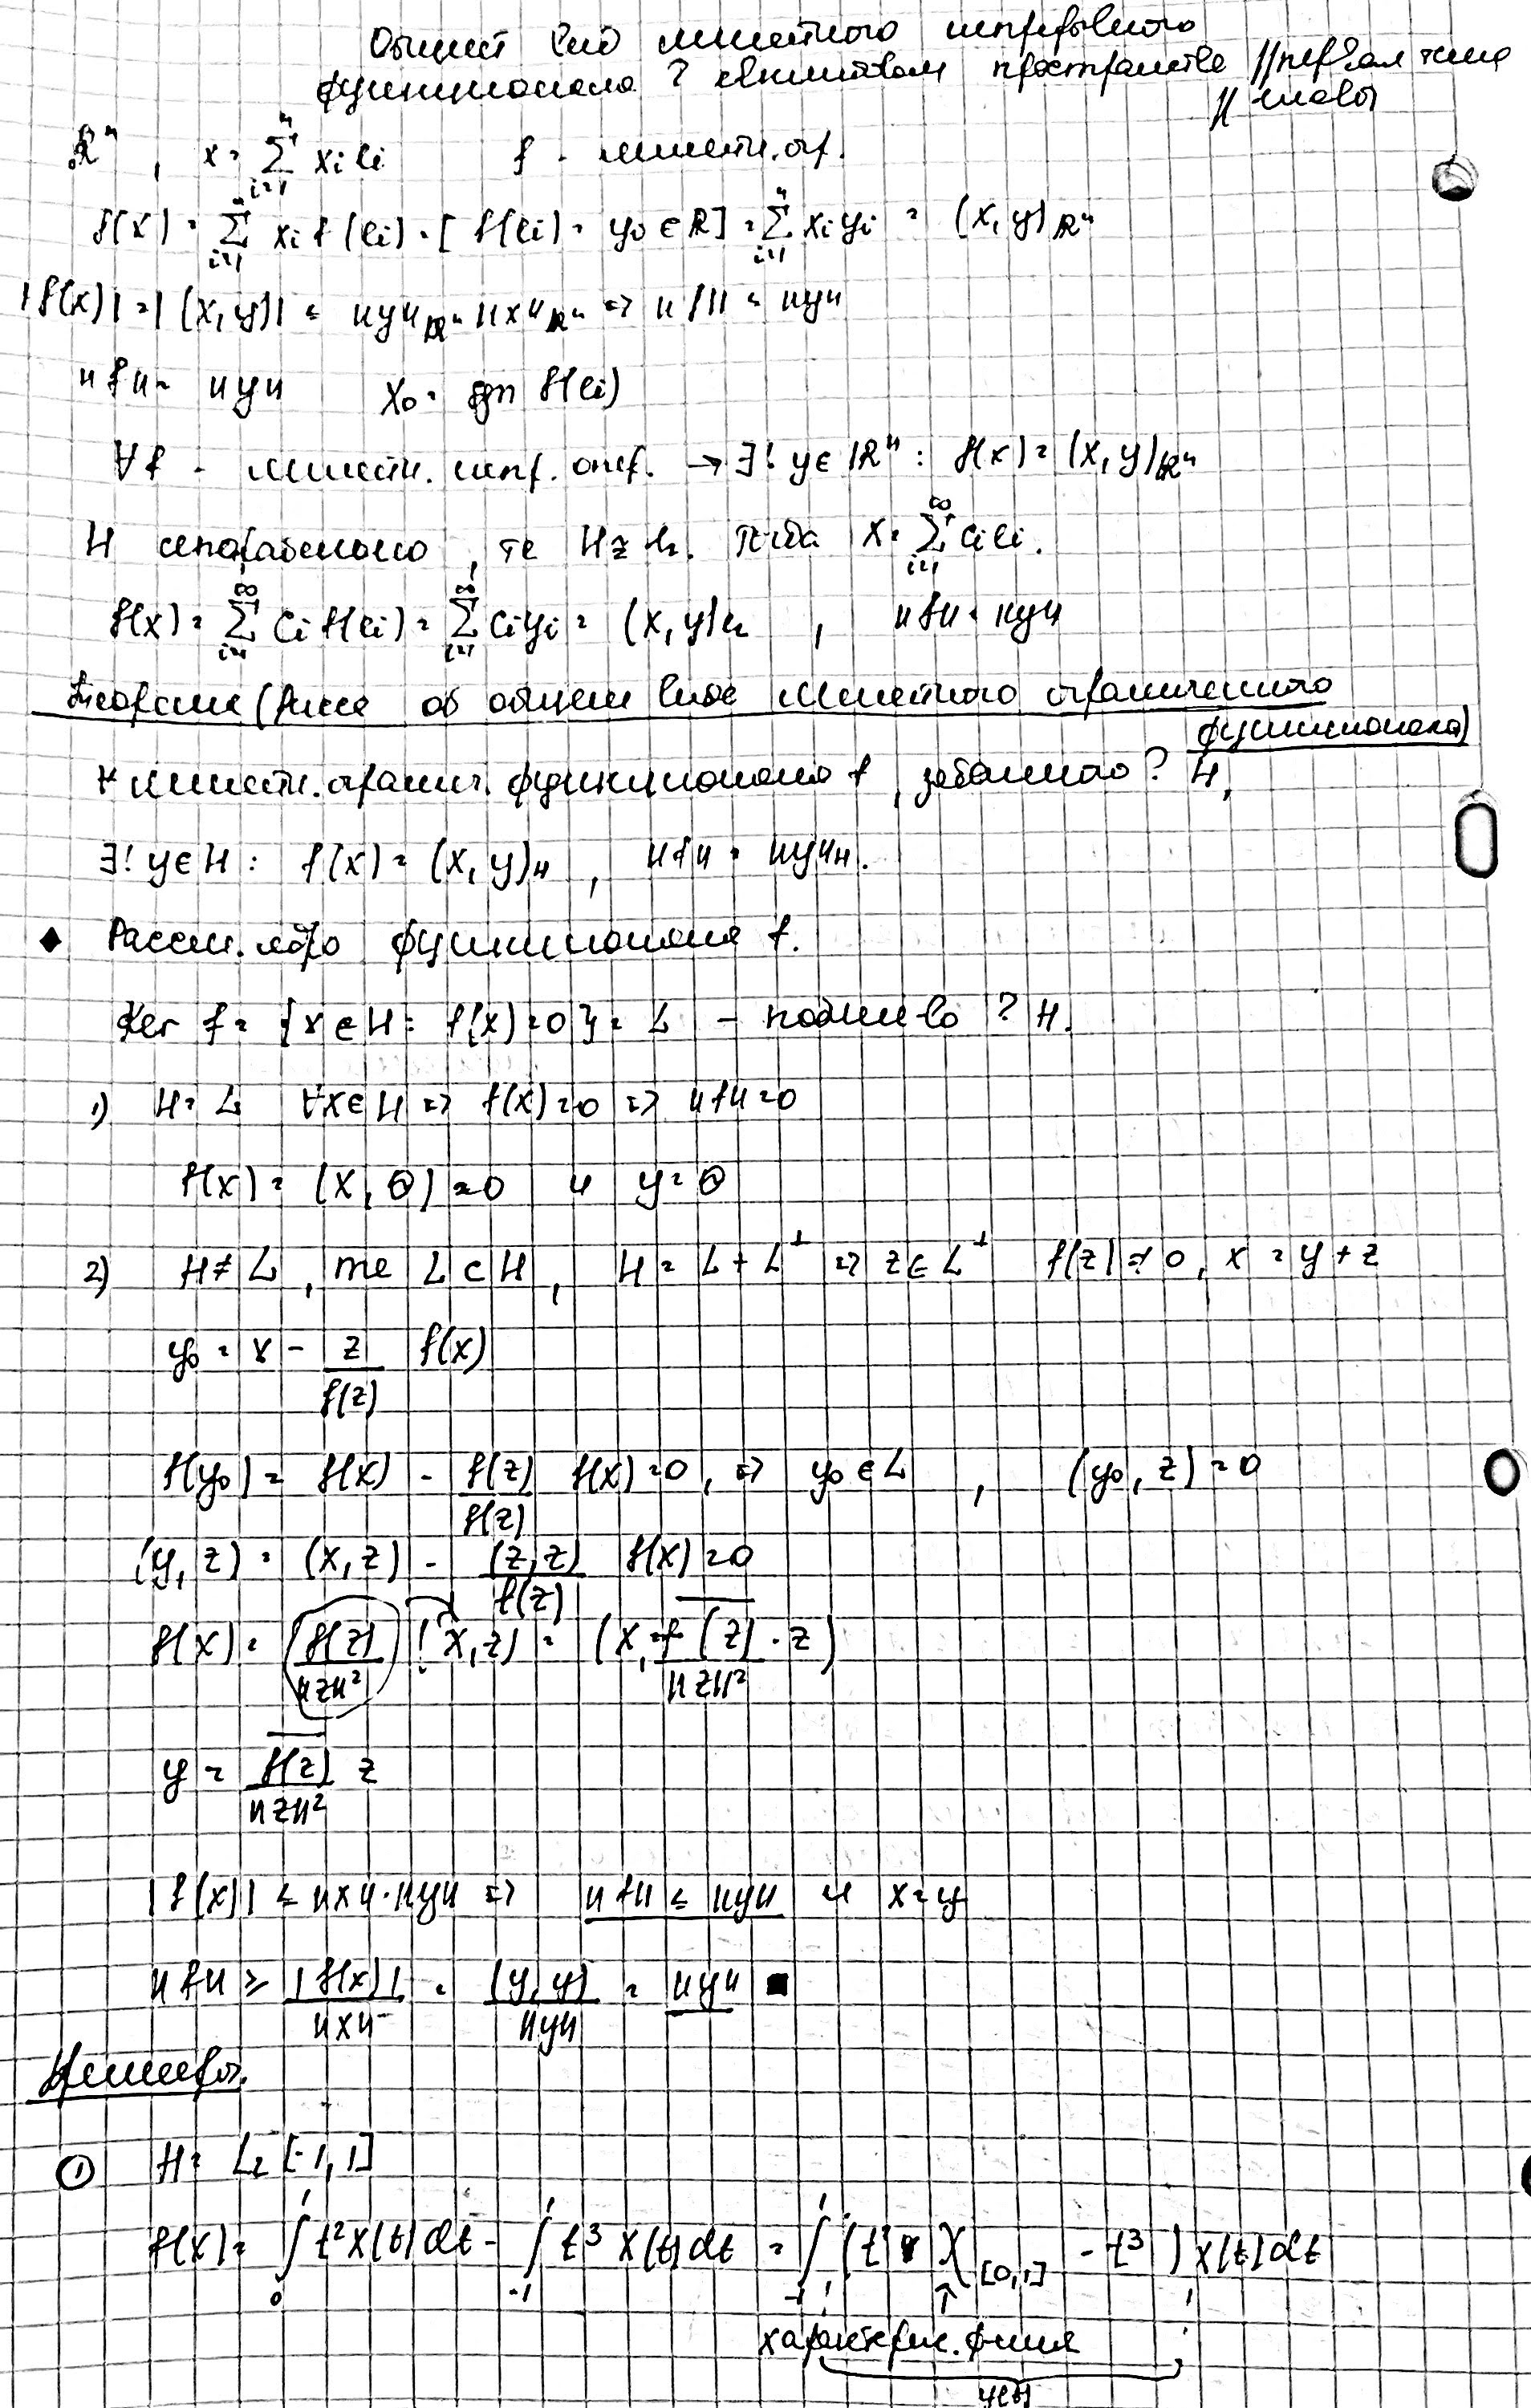 Общий вид линейного непрерывного
функционала в евклидовом пространстве // первая тема
// главы
ℝⁿ, x = \sum_{i=1}^{n} x_i e_i f - линейн. огр.
f(x) = \sum_{i=1}^{n} x_i f(e_i) = [f(e_i) = y_i ∈ ℝ] = \sum_{i=1}^{n} x_i y_i = (x, y)_{ℝⁿ}
|f(x)| = |(x, y)| ≤ ||y||_{ℝⁿ} ||x||_{ℝⁿ} => ||f|| ≤ ||y||
||f|| = ||y|| x_0 = sgn f(e_i)
∀f - линейн. непр. → ∃! y ∈ ℝⁿ : f(x) = (x, y)_{ℝⁿ}
H сепарабельно, те H ≅ l_2. Тогда x = \sum_{i=1}^{∞} c_i e_i.
f(x) = \sum_{i=1}^{∞} c_i f(e_i) = \sum_{i=1}^{∞} c_i y_i = (x, y)_{l_2}, ||f|| = ||y||
Теорема (Рисса об общем виде линейного ограниченного
функционала)
∀ линейн. огранич. функционала f, заданного в H,
∃! y ∈ H : f(x) = (x, y)_H, ||f|| = ||y||_H.
◆ Рассм. ядро функционала f.
Ker f = {x ∈ H : f(x) = 0} = L - подпр-во в H.
1) H = L ∀x ∈ H => f(x) = 0 => ||f|| = 0
f(x) = (x, Θ) = 0 и y = Θ
2) H ≠ L, те L ⊂ H, H = L + L^⊥ => z ∈ L^⊥ f(z) ≠ 0, x = y + z
y_0 = x - \frac{z}{f(z)} f(x)
f(y_0) = f(x) - \frac{f(z)}{f(z)} f(x) = 0, => y_0 ∈ L, (y_0, z) = 0
(y, z) = (x, z) - \frac{(z, z)}{f(z)} f(x) = 0
f(x) = \frac{f(z)}{||z||²} (x, z) = (x, \frac{\overline{f(z)} · z}{||z||²})
y = \frac{\overline{f(z)}}{||z||²} z
|f(x)| ≤ ||x|| · ||y|| => ||f|| ≤ ||y|| и x = y
||f|| ≥ \frac{|f(x)|}{||x||} = \frac{(y, y)}{||y||} = ||y|| ■
Примеры.
① H = L_2 [-1, 1]
f(x) = \int_0^1 t² x(t) dt - \int_{-1}^1 t³ x(t) dt = \int_{-1}^1 (t² χ_{[0,1]} - t³) x(t) dt
↑
характерис. ф-ция
y(t)